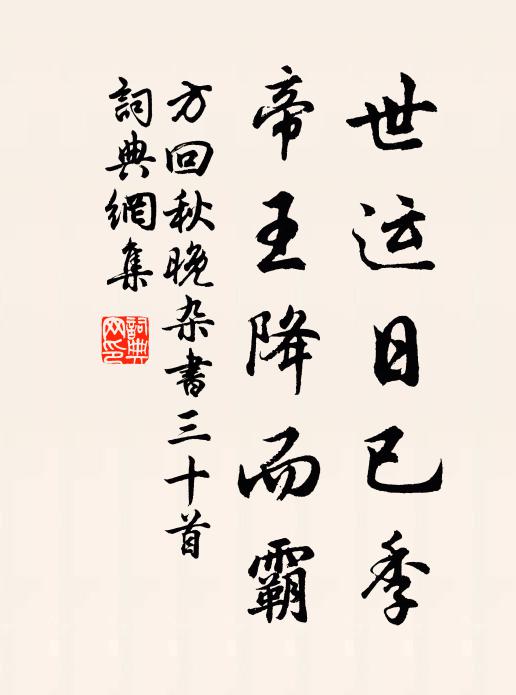 世运日已季
帝王降而霸
方回秋晚杂书三十首
詞典網集
詞典网印